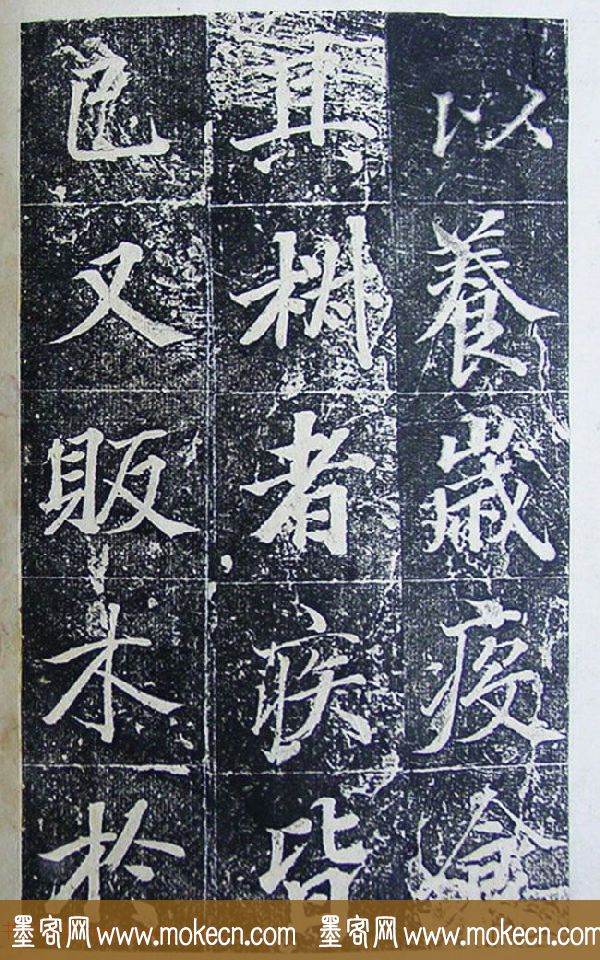 以養歲疫食
其者疾皆
已又販木於
墨客网 www.mokecn.com 墨客网 www.mokecn.com